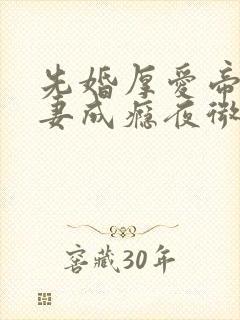 先婚厚爱帝
妻成瘾夜微
窖藏30年